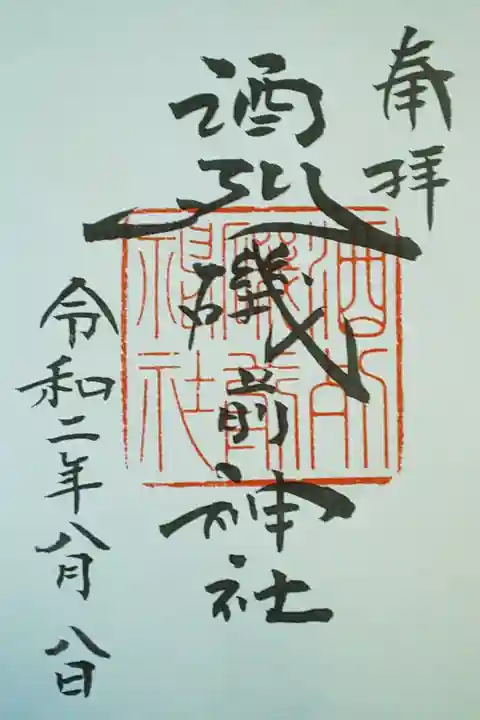 奉拝
酒列磯前神社
酒列
磯前
神社
令和二年八月八日